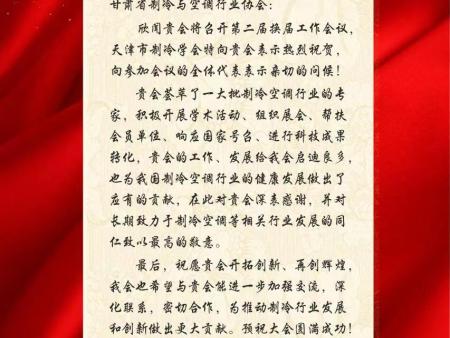 甘肃省制冷与空调行业协会:
欣闻贵会将召开第二届换届工作会议,
天津市制冷学会特向贵会表示热烈祝贺,
向参加会议的全体代表表示亲切的问候!
贵会荟萃了一大批制冷空调行业的专
家,积极开展学术活动、组织展会、帮扶
会员单位、响应国家号召、进行科技成果
转化,贵会的工作、发展给我会启迪良多,
也为我国制冷空调行业的健康发展做出了
应有的贡献,在此对贵会深表感谢,并对
长期致力于制冷空调等相关行业发展的同
仁致以最高的敬意。
最后,祝愿贵会开拓创新、再创辉煌,
我会也希望与贵会能进一步加强交流,深
化联系,密切合作,为推动制冷行业发展
和创新做出更大贡献。预祝大会圆满成功!